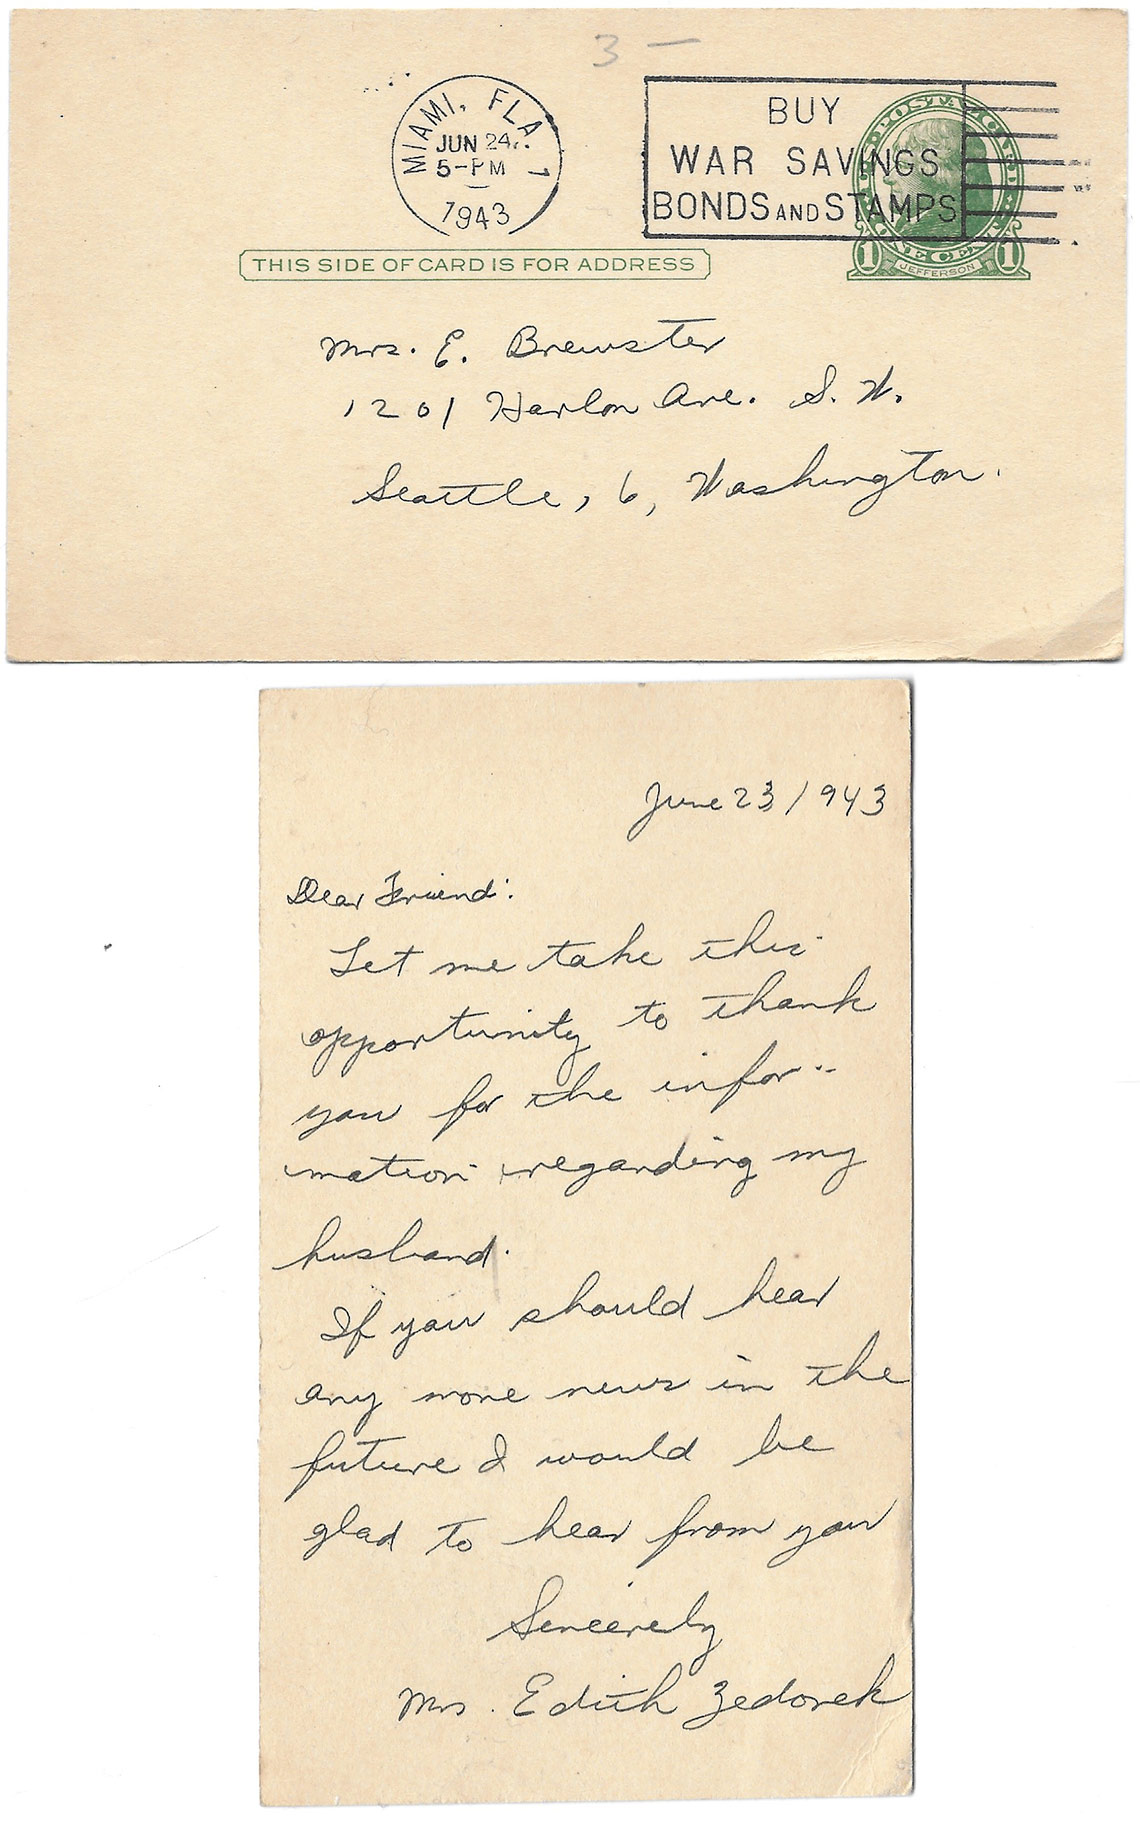 3 —
MIAMI, FLA 1
JUN 24
5-PM
1943
BUY
WAR SAVINGS
BONDS AND STAMPS
U.S. POSTAL CARD
ONE CENT
1 JEFFERSON 1
THIS SIDE OF CARD IS FOR ADDRESS
Mrs. E. Brewster
1201 Harlon Ave. S. W.
Seattle, 6, Washington.
June 23/1943
Dear Friend:
Let me take this
opportunity to thank
you for the infor-
mation regarding my
husband.
If you should hear
any more news in the
future I would be
glad to hear from you
Sincerely
Mrs. Edith Zedonek